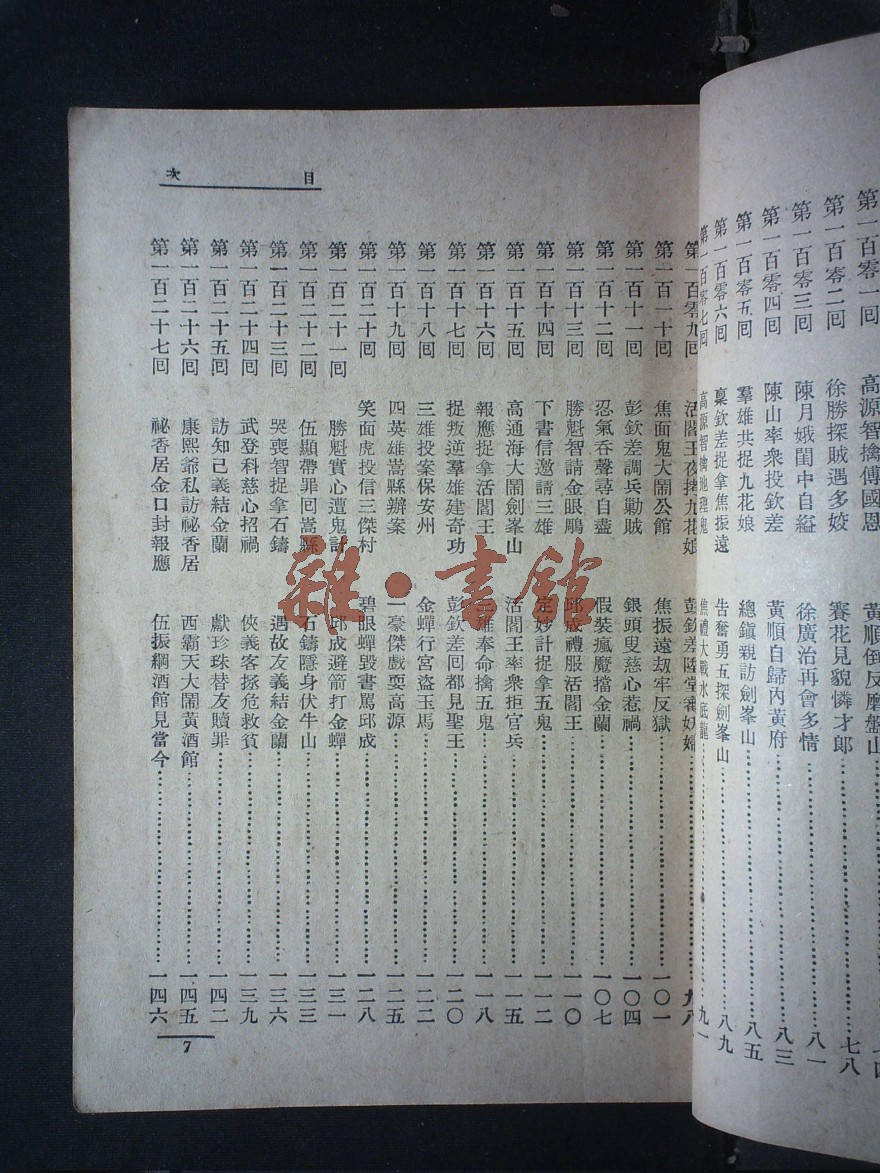 第一百零一回 高源智擒傅國恩 黃順倒反磨盤山
第一百零二回 徐勝探賊遇多姣 賽花見貌憐才郎 七八
第一百零三回 陳月娥閨中自縊 徐廣治再會多情 八一
第一百零四回 陳山率衆投欽差 黃順自歸內黃府 八三
第一百零五回 羣雄共捉九花娘 總鎮親訪劍峯山 八五
第一百零六回 稟欽差捉拿焦振遠 奮勇五探劍峯山 八九
第一百零七回 高源智擒地理鬼 焦禮大戰水底龍 九一
第一百零九回 活閻王夜拷九花娘 彭欽差陞堂審妖婦 九八
第一百一十回 焦面鬼大鬧公館 焦振遠刼牢反獄 一〇一
第一百十一回 彭欽差調兵勦賊 銀頭叟慈心惹禍 一〇四
第一百十二回 忍氣吞聲尋自盡 假裝瘋魔擋金蘭 一〇七
第一百十三回 勝魁智請金眼鵰 邱成禮服活閻王 一一〇
第一百十四回 下書信邀請三雄 定妙計捉拿五鬼 一一二
第一百十五回 高通海大鬧劍峯山 活閻王率衆拒官兵 一一五
第一百十六回 報應捉拿活閻王 三雄奉命擒五鬼 一一八
第一百十七回 捉叛逆羣雄建奇功 彭欽差回都見聖王 一二〇
第一百十八回 三雄投案保安州 金蟬行宮盜玉馬 一二二
第一百十九回 四英雄嵩縣辦案 一豪傑戲耍高源 一二五
第一百二十回 笑面虎投信三傑村 碧眼蟬毀書罵邱成 一二八
第一百二十一回 勝魁實心遭鬼計 邱成避箭打金蟬 一三一
第一百二十二回 伍顯帶罪回嵩縣 石鑄隱身伏牛山 一三三
第一百二十三回 哭喪智捉拿石鑄 遇故友義結金蘭 一三六
第一百二十四回 武登科慈心招禍 俠義客拯危救貧 一三九
第一百二十五回 訪知己義結金蘭 獻珍珠替友贖罪 一四二
第一百二十六回 康熙爺私訪祕香居 西霸天大鬧黃酒館 一四五
第一百二十七回 祕香居金口封報應 伍振綱酒館見當今 一四六
目次
7
雜·書館